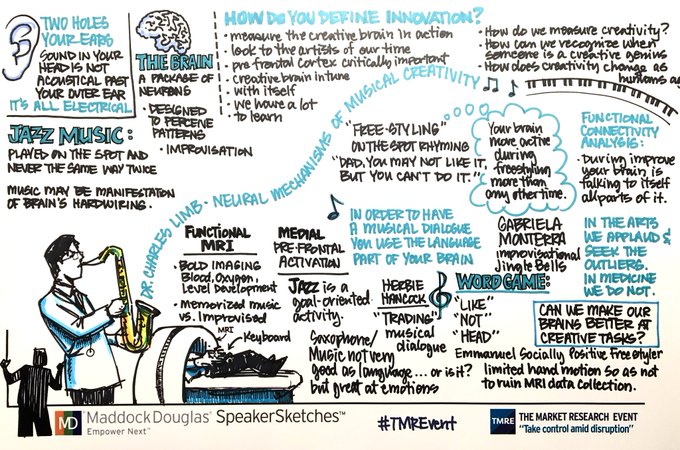 TWO HOLES
YOUR EARS
SOUND IN YOUR
HEAD IS NOT
ACOUSTICAL PAST
YOUR OUTER EAR
IT'S ALL ELECTRICAL
THE BRAIN
A PACKAGE OF
NEURONS
• DESIGNED
TO PERCEIVE
PATTERNS
• IMPROVISATION
HOW DO YOU DEFINE INNOVATION?
• measure the creative brain in action
• look to the artists of our time
• pre frontal cortex critically important
• creative brain intune
• with itself
• we have a lot
• to learn
• How do we measure creativity?
• How can we recognize when
someone is a creative genius
• How does creativity change as
humans ag
JAZZ MUSIC:
PLAYED ON THE SPOT AND
NEVER THE SAME WAY TWICE
MUSIC MAY BE MANIFESTATION
OF BRAIN'S HARDWIRING.
DR. CHARLES LIMB • NEURAL MECHANISMS OF MUSICAL CREATIVITY
"FREE-STYLING"
ON THE SPOT RHYMING
"DAD, YOU MAY NOT LIKE IT,
BUT YOU CAN'T DO IT."
Your brain
more active
during
freestyling
more than
any other time.
FUNCTIONAL
CONNECTIVITY
ANALYSIS:
• During improv
your brain is
talking to itself
all parts of it.
IN ORDER TO HAVE
A MUSICAL DIALOGUE
YOU USE THE LANGUAGE
PART OF YOUR BRAIN
FUNCTIONAL
MRI
• BOLD IMAGING
Blood, Oxygen,
Level Development
• Memorized music
vs. Improvised
MEDIAL
PRE-FRONTAL
ACTIVATION
JAZZ is a
goal-oriented
activity.
HERBIE
HANCOCK
"TRADING"
musical
dialogue
Saxophone/
Music not very
good as language... or is it?
but great at emotions
GABRIELA
MONTERRA
improvisational
Jingle Bells
IN THE ARTS
WE APPLAUD &
SEEK THE
OUTLIERS.
IN MEDICINE
WE DO NOT.
WORD GAME:
"LIKE"
"NOT"
"HEAD"
CAN WE MAKE OUR
BRAINS BETTER AT
CREATIVE TASKS?
Emmanuel Socially Positive Freestyler
limited hand motion so as not
to ruin MRI data collection.
MRI
Keyboard
MD Maddock Douglas® SpeakerSketches™
Empower Next™
#TMREvent
TMRE THE MARKET RESEARCH EVENT
"Take control amid disruption"